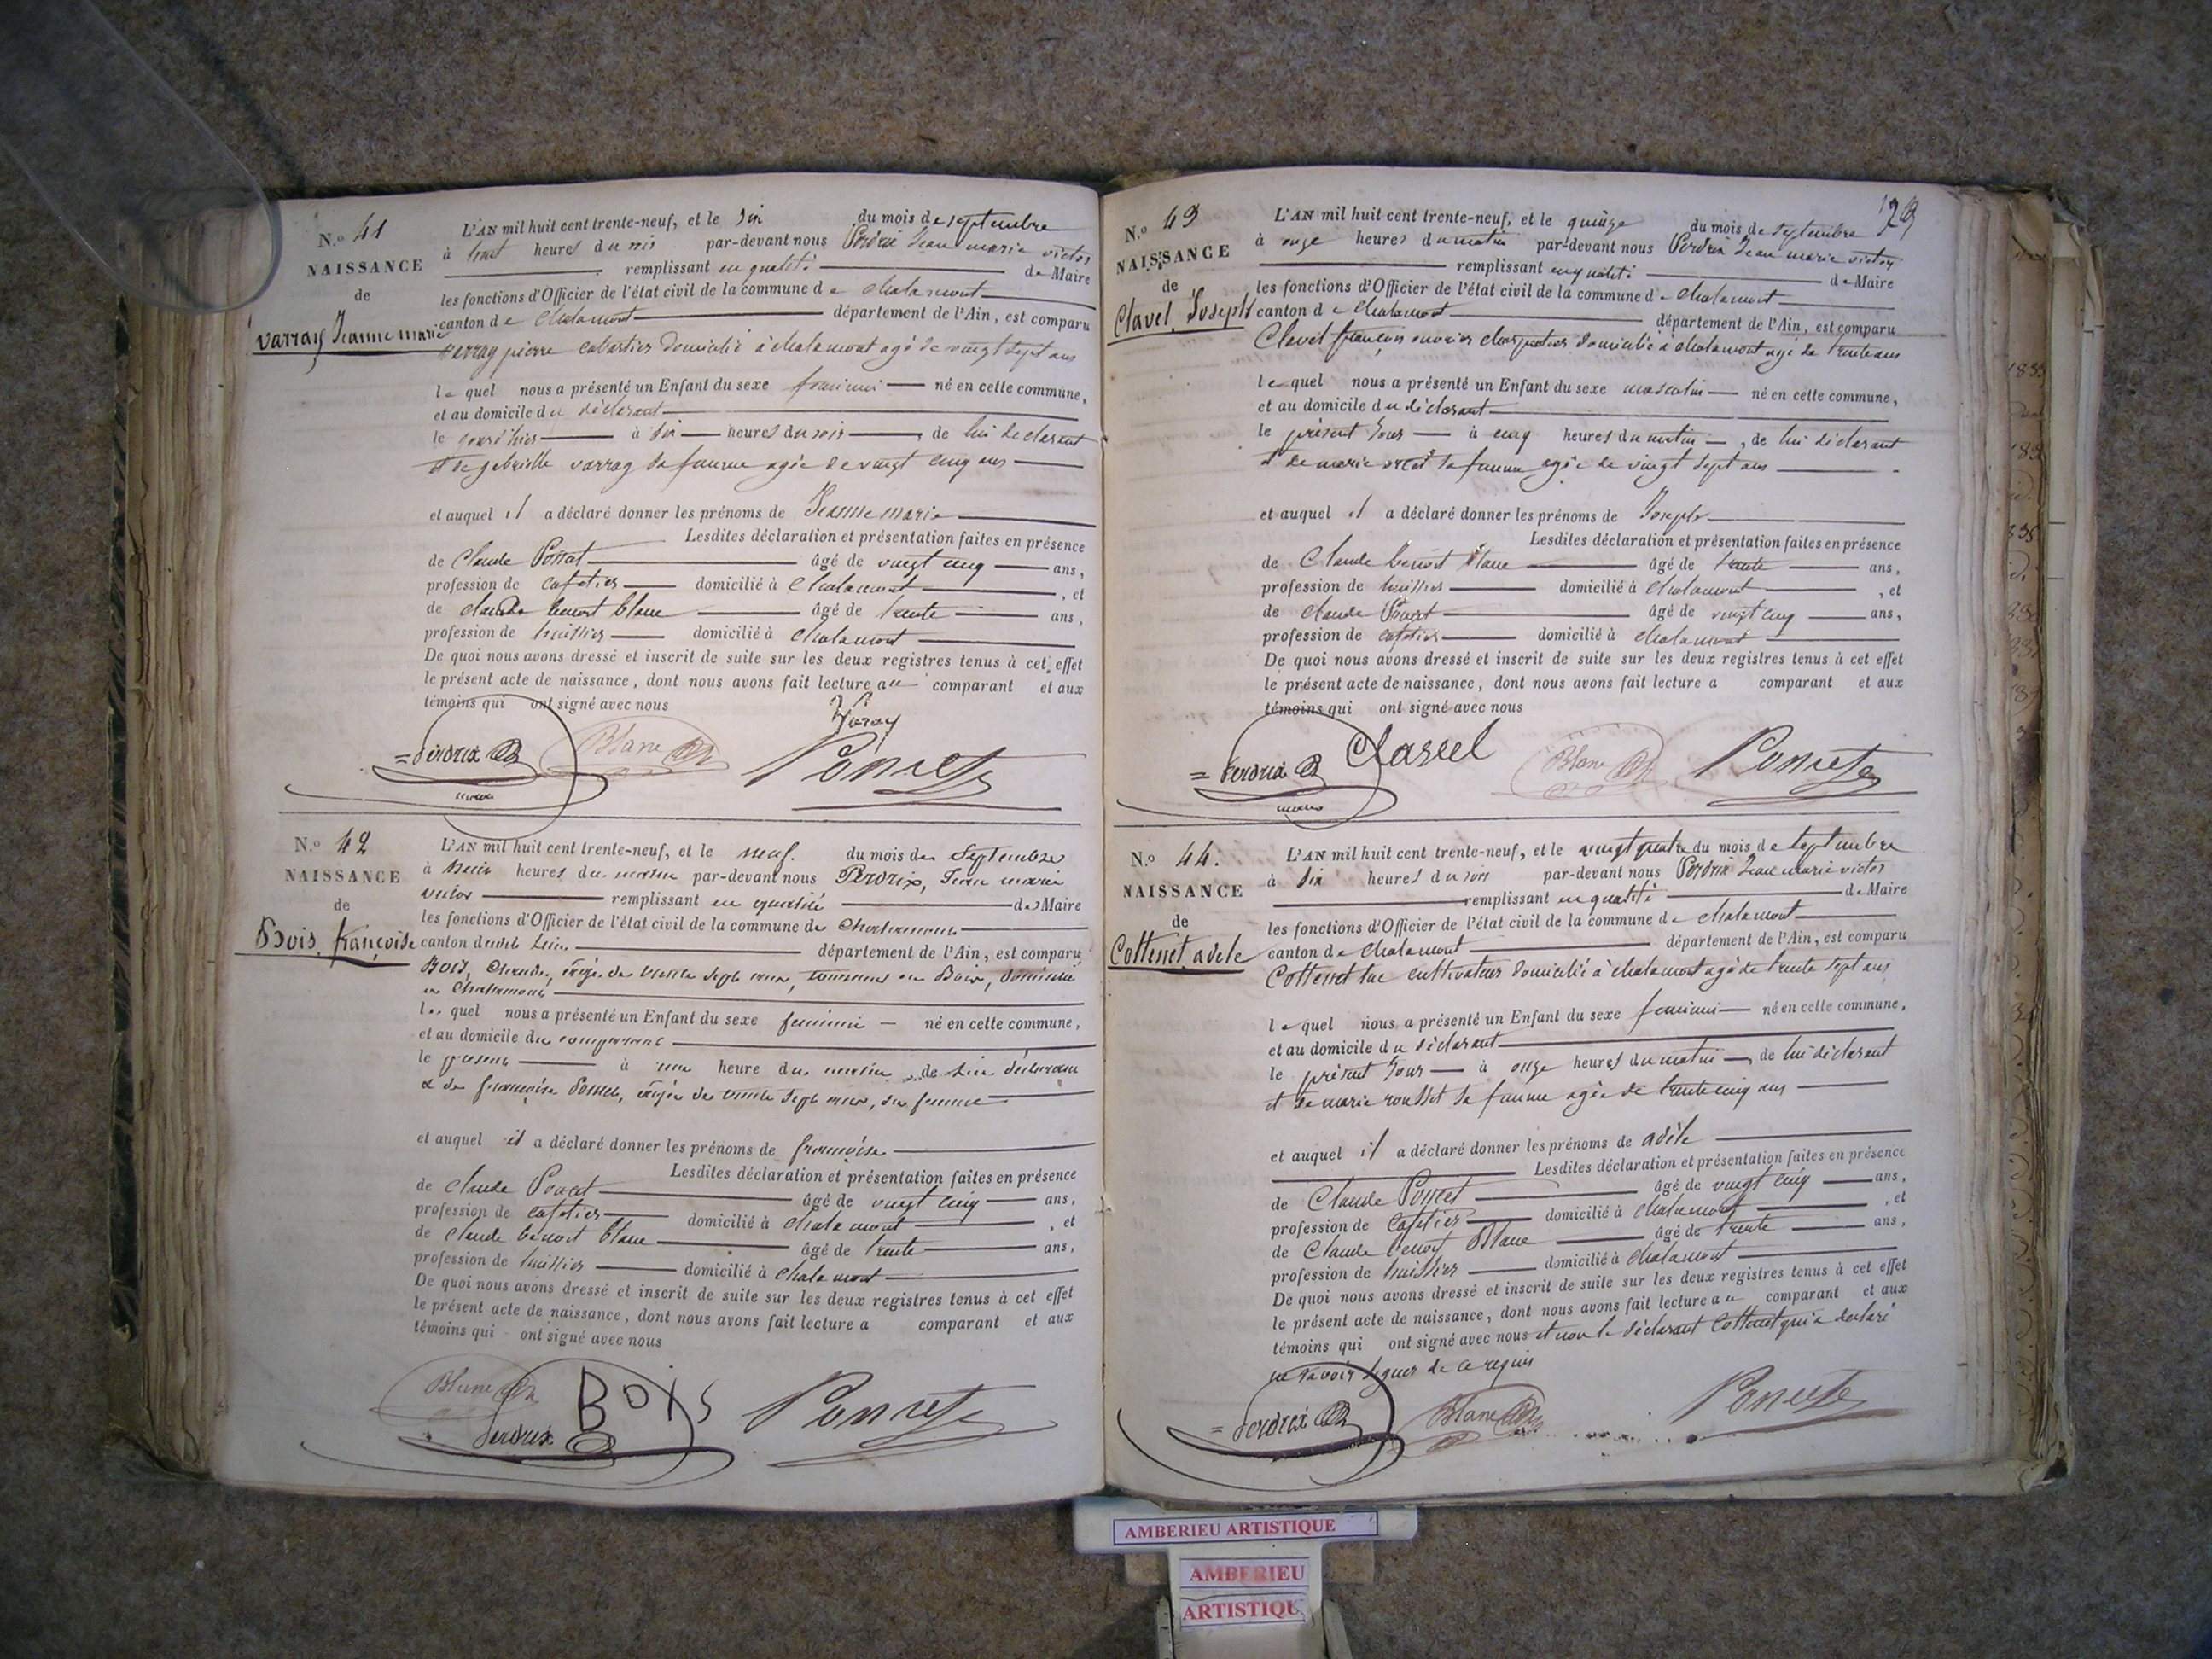 N.o 41
NAISSANCE
de
varray Jeanne marie
L'AN mil huit cent trente-neuf, et le six du mois de septembre
à huit heures du soir par-devant nous Perdrix Jean marie victor
remplissant en qualité de Maire
les fonctions d'Officier de l'état civil de la commune de chalamont
canton de chalamont département de l'Ain, est comparu
varray pierre cabartier domicilié à chalamont agé de vingt sept ans
lequel nous a présenté un Enfant du sexe féminin né en cette commune,
et au domicile du déclarant
le jour d'hier à six heures du soir, de lui déclarant
et de gabrielle varray sa femme agée de vingt cinq ans
et auquel il a déclaré donner les prénoms de Jeanne marie
Lesdites déclaration et présentation faites en présence
de Claude Poncet âgé de vingt cinq ans,
profession de cafetier domicilié à chalamont, et
de claude benoit blanc âgé de trente ans,
profession de huissier domicilié à chalamont
De quoi nous avons dressé et inscrit de suite sur les deux registres tenus à cet effet
le présent acte de naissance, dont nous avons fait lecture au comparant et aux
témoins qui ont signé avec nous
Varay
= Perdrix Blanc Poncet
maire
N.o 42
NAISSANCE
de
Bois, françoise
L'AN mil huit cent trente-neuf, et le neuf. du mois de Septembre
à heures du matin par-devant nous Perdrix, Jean marie
victor remplissant en qualité de Maire
les fonctions d'Officier de l'état civil de la commune de Chalamont
canton dudit Lieu département de l'Ain, est comparu
Bois, Claude, âgé de trente sept ans, tourneur en Bois, domicilié
à Chalamont
lequel nous a présenté un Enfant du sexe féminin né en cette commune,
et au domicile du comparant
le present à une heure du matin, de lui déclarant
& de françoise Poncet, âgée de trente sept ans, sa femme
et auquel il a déclaré donner les prénoms de françoise
Lesdites déclaration et présentation faites en présence
de Claude Poncet âgé de vingt cinq ans,
profession de cafetier domicilié à chalamont, et
de claude benoit blanc âgé de trente ans,
profession de huissier domicilié à chalamont
De quoi nous avons dressé et inscrit de suite sur les deux registres tenus à cet effet
le présent acte de naissance, dont nous avons fait lecture a comparant et aux
témoins qui ont signé avec nous
Blanc Bois Poncet
Perdrix
N.o 43
NAISSANCE
de
Clavel, Joseph
L'AN mil huit cent trente-neuf, et le quinze du mois de septembre
à onze heures du matin par-devant nous Perdrix Jean marie victor
remplissant en qualité de Maire
les fonctions d'Officier de l'état civil de la commune de chalamont
canton de chalamont département de l'Ain, est comparu
Clavel françois ouvrier charpentier domicilié à chalamont agé de trente ans
lequel nous a présenté un Enfant du sexe masculin né en cette commune,
et au domicile du déclarant
le présent jour à cinq heures du matin, de lui déclarant
et de marie sa femme agée de vingt sept ans
et auquel il a déclaré donner les prénoms de Joseph
Lesdites déclaration et présentation faites en présence
de Claude benoit blanc âgé de trente ans,
profession de huissier domicilié à chalamont, et
de claude Poncet âgé de vingt cinq ans,
profession de cafetier domicilié à chalamont
De quoi nous avons dressé et inscrit de suite sur les deux registres tenus à cet effet
le présent acte de naissance, dont nous avons fait lecture a comparant et aux
témoins qui ont signé avec nous
= Perdrix Clavel Blanc Poncet
maire
N.o 44.
NAISSANCE
de
Cottenet adele
L'AN mil huit cent trente-neuf, et le vingt quatre du mois de septembre
à six heures du soir par-devant nous Perdrix Jean marie victor
remplissant en qualité de Maire
les fonctions d'Officier de l'état civil de la commune de chalamont
canton de chalamont département de l'Ain, est comparu
Cottenet luc cultivateur domicilié à chalamont agé de trente sept ans
lequel nous a présenté un Enfant du sexe féminin né en cette commune,
et au domicile du déclarant
le présent jour à onze heures du matin, de lui déclarant
et de marie rousset sa femme agée de trente cinq ans
et auquel il a déclaré donner les prénoms de adèle
Lesdites déclaration et présentation faites en présence
de Claude Poncet âgé de vingt cinq ans,
profession de cafetier domicilié à chalamont, et
de Claude benoit Blanc âgé de trente ans,
profession de huissier domicilié à chalamont
De quoi nous avons dressé et inscrit de suite sur les deux registres tenus à cet effet
le présent acte de naissance, dont nous avons fait lecture au comparant et aux
témoins qui ont signé avec nous et non le déclarant Cottenet qui a declaré
ne savoir signer de ce requis
= Perdrix Blanc Poncet
AMBERIEU ARTISTIQUE
AMBERIEU
ARTISTIQU